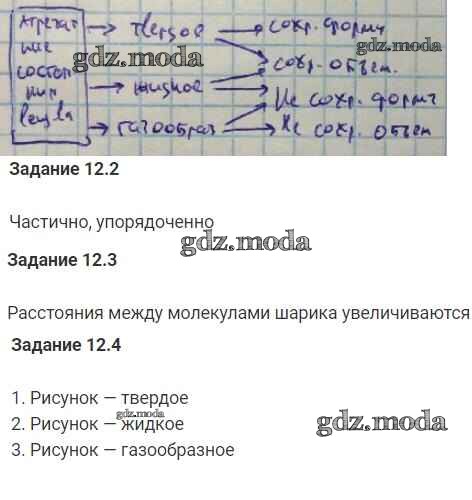 Агрегат
ние
состоя
ния
вещ-ва
твердое
жидкое
газообраз
сохр. форму
сохр. объем.
Не сохр. форму
Не сохр. объем
gdz.moda
gdz.moda
Задание 12.2
Частично, упорядоченно
gdz.moda
Задание 12.3
Расстояния между молекулами шарика увеличиваются
Задание 12.4
1. Рисунок — твердое
gdz.moda
2. Рисунок — жидкое
gdz.moda
3. Рисунок — газообразное